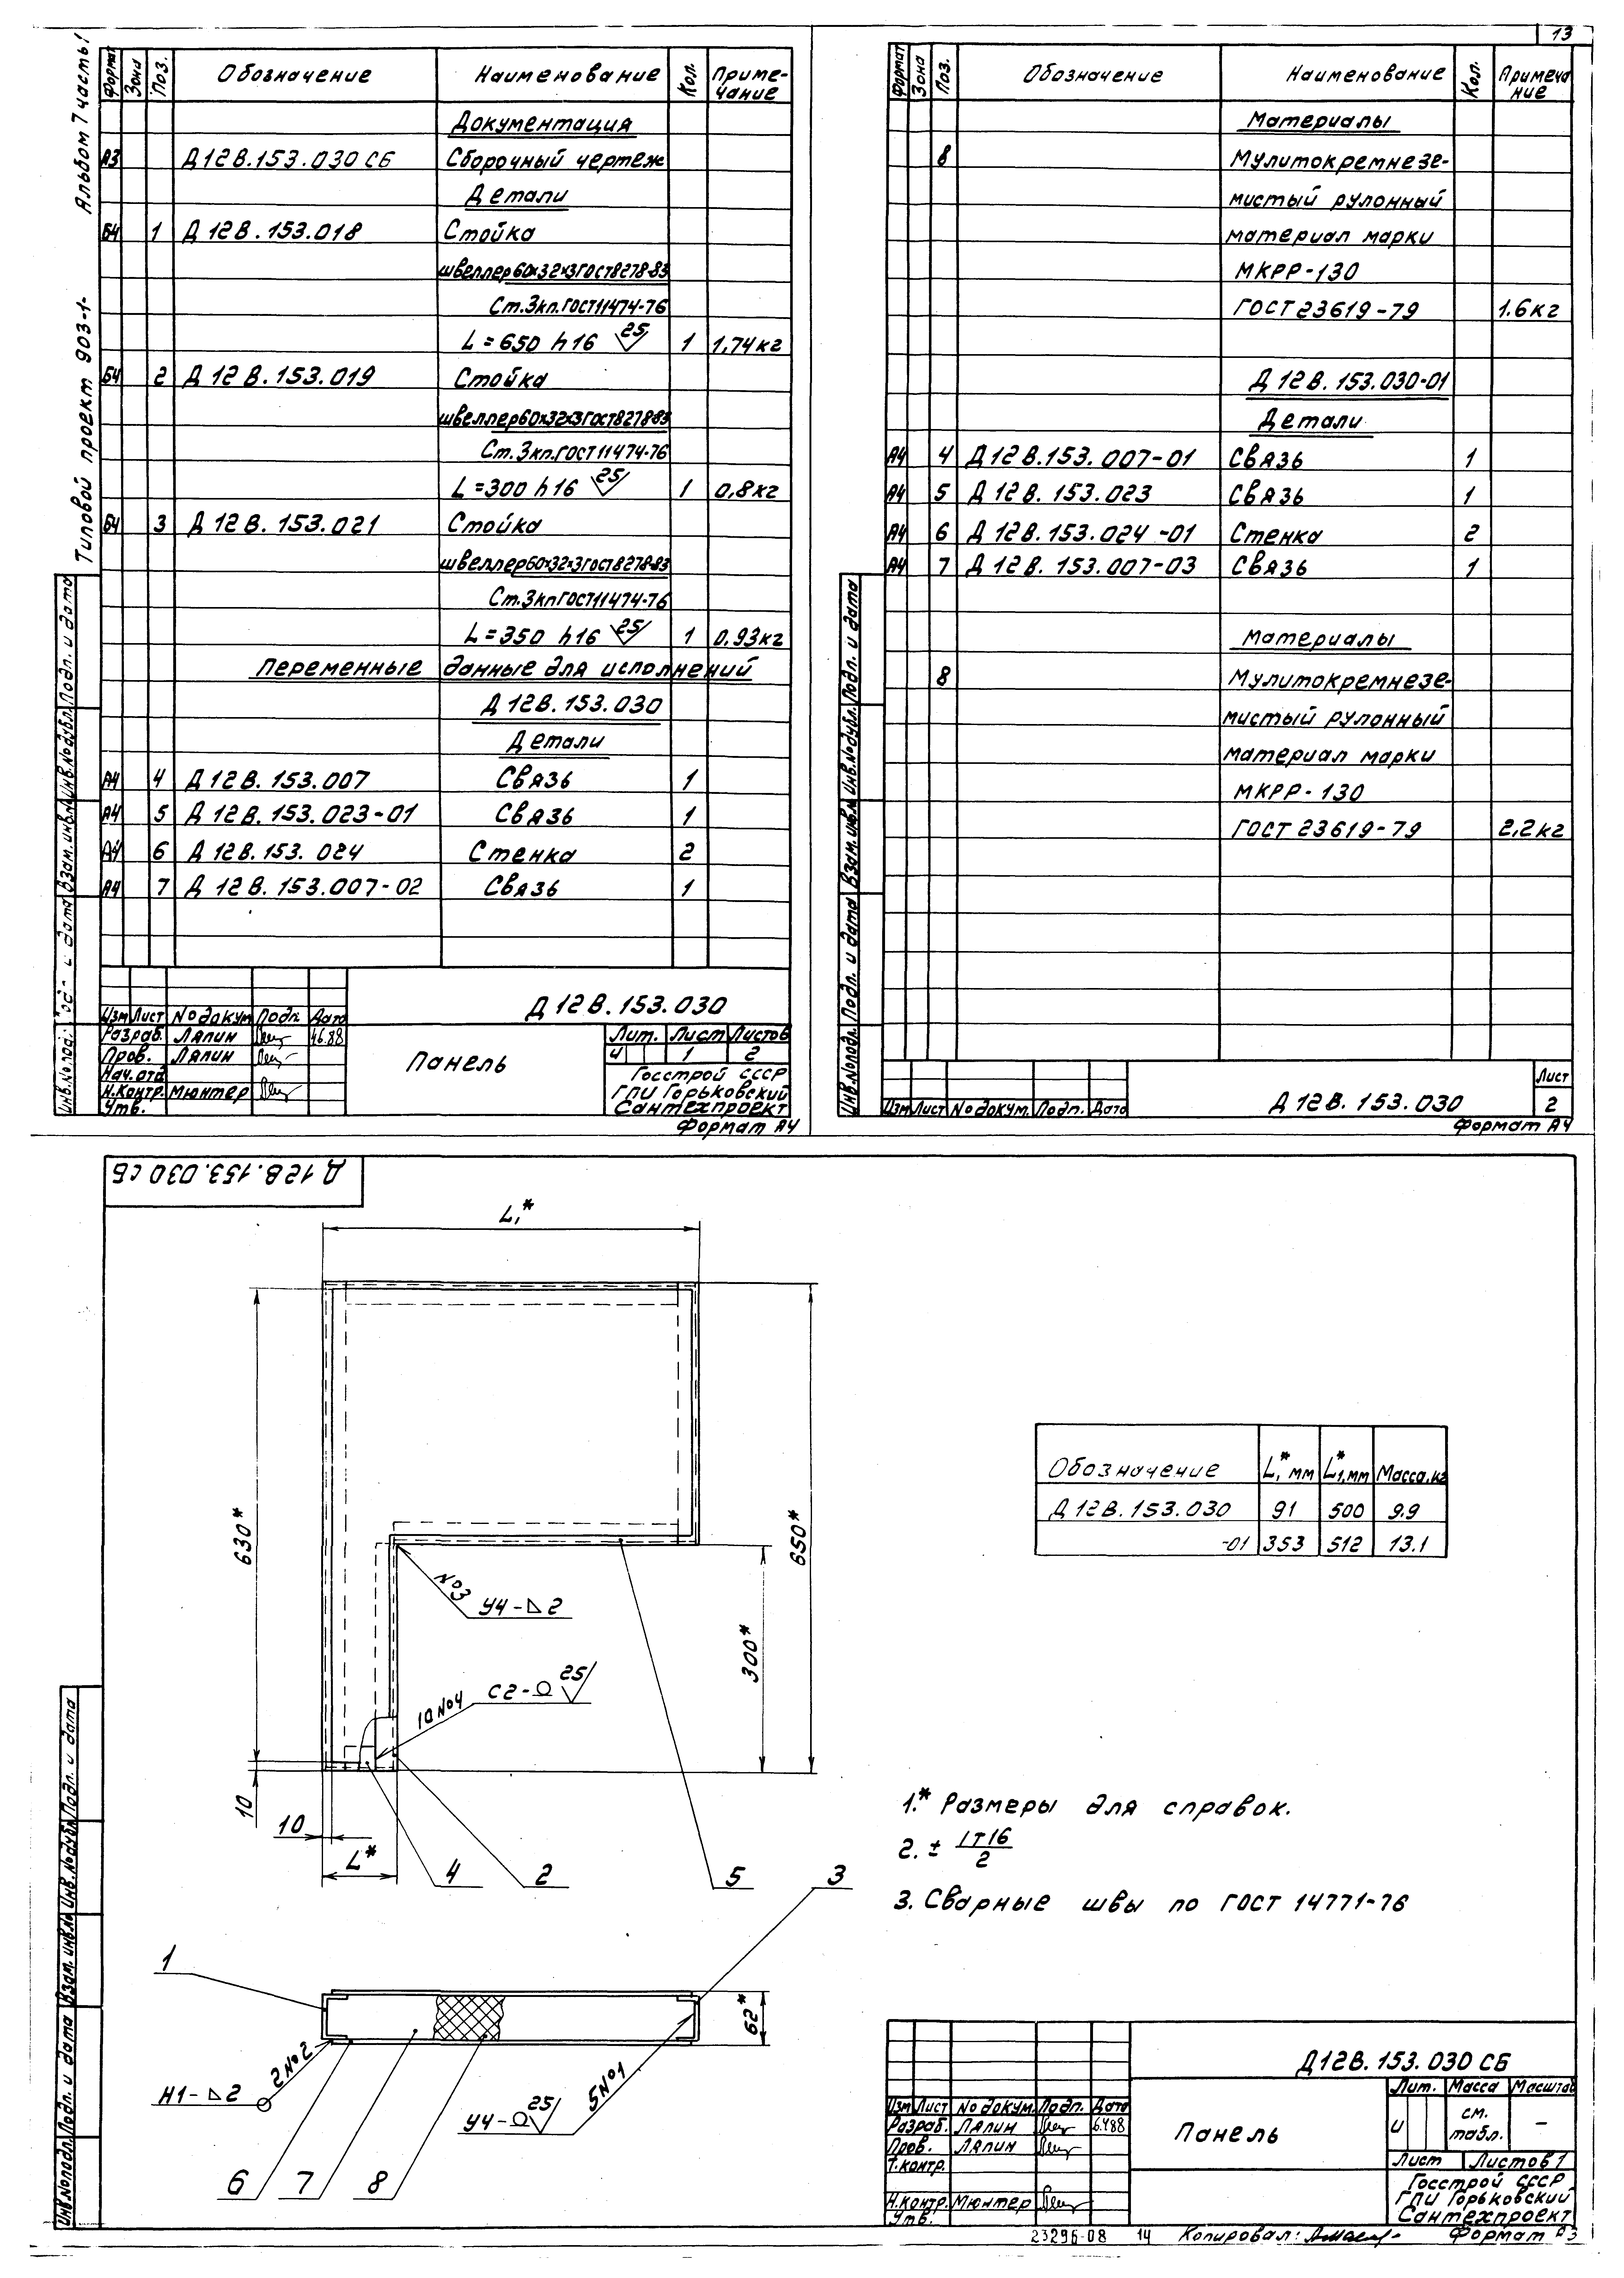 13
Альбом 7 часть 1
Типовой проект 903-1-
Формат Зона Поз. Обозначение Наименование Кол. Примечание
Документация
А3 Д12В.153.030 СБ Сборочный чертеж
Детали
Б4 1 Д12В.153.018 Стойка
швеллер 60х32х3 ГОСТ 8278-83
Ст.3кп.ГОСТ 11474-76
L=650 h16 25 1 1,74кг
Б4 2 Д12В.153.019 Стойка
швеллер 60х32х3 ГОСТ 8278-83
Ст.3кп.ГОСТ 11474-76
L=300 h16 25 1 0,8кг
Б4 3 Д12В.153.021 Стойка
швеллер 60х32х3 ГОСТ 8278-83
Ст.3кп ГОСТ 11474-76
L=350 h16 25 1 0.93кг
Переменные данные для исполнений
Д12В.153.030
Детали
А4 4 Д12В.153.007 Связь 1
А4 5 Д12В.153.023-01 Связь 1
А4 6 Д12В.153.024 Стенка 2
А4 7 Д12В.153.007-02 Связь 1
Д12В.153.030
Изм Лист № докум. Подп. Дата
Разраб. Ляпин
Пров. Ляпин
Нач.отд
Н.контр. Мюнтер
Утв.
Панель
Лит. Лист Листов
и 1 2
Госстрой СССР
ГПИ Горьковский
Сантехпроект
Формат А4
Инв.№подл. Подп. и дата Взам.инв.№ Инв.№дубл. Подп. и дата
Формат Зона Поз. Обозначение Наименование Кол. Примечание
Материалы
8 Мулитокремнезе-
мистый рулонный
материал марки
МКРР-130
ГОСТ 23619-79 1.6кг
Д12В.153.030-01
Детали
А4 4 Д12В.153.007-01 Связь 1
А4 5 Д12В.153.023 Связь 1
А4 6 Д12В.153.024-01 Стенка 2
А4 7 Д12В.153.007-03 Связь 1
Материалы
8 Мулитокремнезе-
мистый рулонный
материал марки
МКРР-130
ГОСТ 23619-79 2,2кг
Инв.№подл. Подп. и дата Взам.инв.№ Инв.№дубл. Подп. и дата
Изм Лист № докум. Подп. Дата
Д12В.153.030
Лист
2
Формат А4
Д12В.153.030 СБ
L1*
630*
650*
300*
№3 У4-⊿2
10 №4 С2- 25
10
10
L*
4 2 5 3
Обозначение L,* мм L1,* мм Масса,кг
Д12В.153.030 91 500 9.9
-01 353 512 13.1
1.* Размеры для справок.
2. ± IT16/2
3. Сварные швы по ГОСТ 14771-76
1
62*
2 №2
Н1-⊿2
5 №1
У4- 25
6 7 8
Инв.№подл. Подп. и дата Взам.инв.№ Инв.№дубл. Подп. и дата
Д12В.153.030 СБ
Изм Лист № докум. Подп. Дата
Разраб. Ляпин
Пров. Ляпин
Т.контр.
Н.контр. Мюнтер
Утв.
Панель
Лит. Масса Масштаб
и см. табл. -
Лист Листов 1
Госстрой СССР
ГПИ Горьковский
Сантехпроект
23296-08 14 Копировал: Формат А3